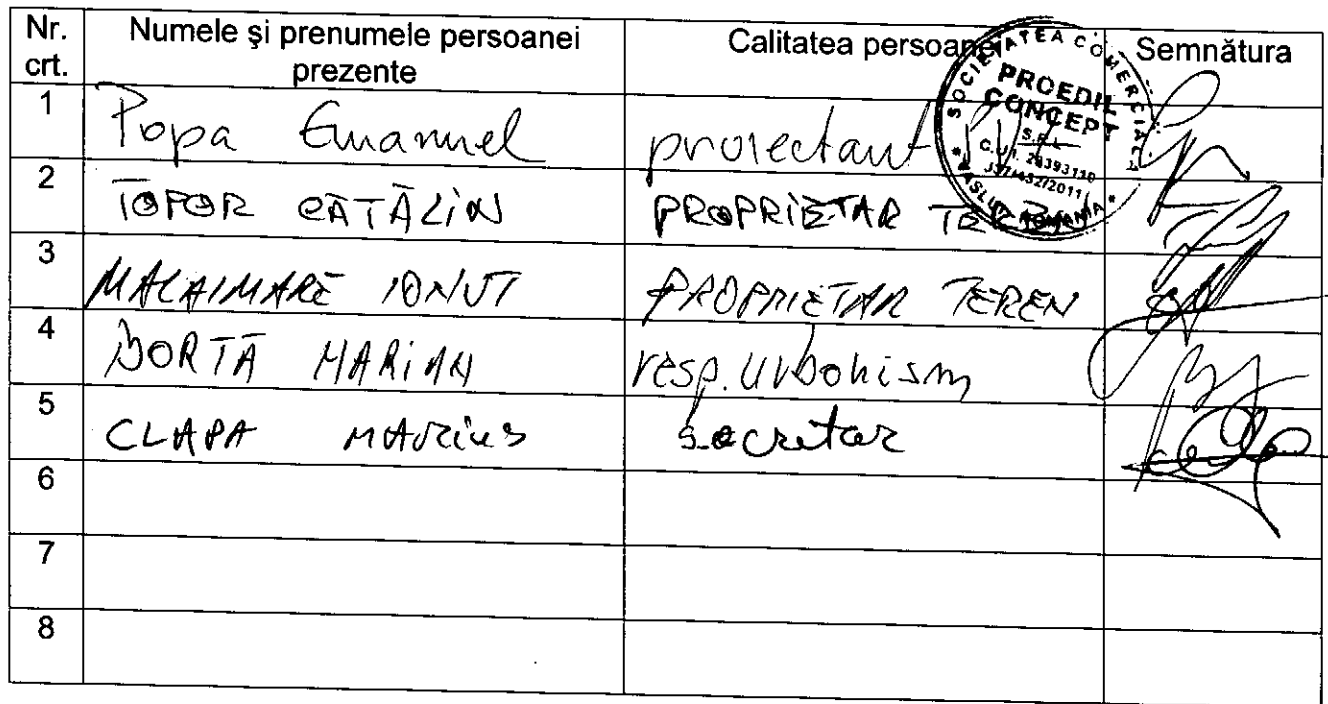 Nr. crt. Numele și prenumele persoanei prezente Calitatea persoanei Semnătura
1 Popa Emanuel proiectant
2 TOFOR CĂTĂLIN PROPRIETAR TEREN
3 MALAIMARE IONUT PROPRIETAR TEREN
4 DORTĂ MARIAN resp. urbanism
5 CLAPA MARIUS secretar
6
7
8
SOCIETATEA COMERCIALĂ
PROEDIL
CONCEPT
S.R.L.
C.U.I. 28393110
J37/432/2011
* VASLUI - ROMANIA *